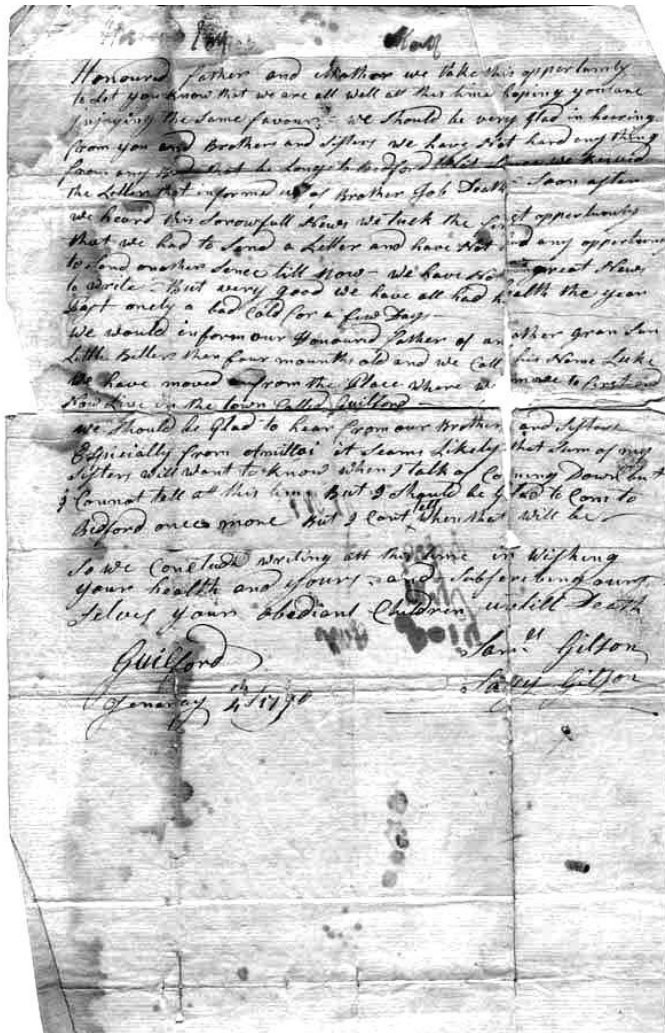 Honoured father and Mother we take this opportunity
to let you know that we are all well att this time hoping you are
Injoying the same favour - we should be very glad in hearing
from you and Brothers and Sisters we have Not hard any thing
from any that be Longs to Bedford Sence we
the Letter that informed us of Brother Job Death - Soon after
we heard this Sorowfull News we tuck the opportunity
that we had to Send a Letter and have Not had any opportunity
to Send another Sence till Now - we have No great News
to write - But very good we have all had health the year
Past onely a bad Cold for a few Days -
We would inform our Honoured father of another gran Sun
Little Better than four mounths old and we Call his Name Luke
We have moved from the Place where we move to first and
Now Live in the town Called Guilford
we Should be Glad to hear from our Brothers and Sisters
Especially from it Seams Likely that Sum of my
Sisters will want to know when I talk of Coming Down but
I Cannot tell att this time But I Should be Glad to Com to
Bedford once more But I Cant tell When that will be
So we Conclude writing att this time in Wishing
your health and yours - and Subscribing our
Selves your obediant Children untill Death
Guilford
Jenuray 4th 1790
Samll Gilson
Gilson